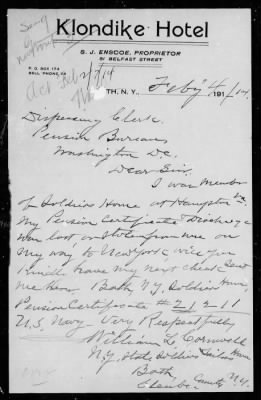 Klondike Hotel
S. J. ENSCOE, PROPRIETOR
51 BELFAST STREET
P. O. BOX 174
BELL PHONE,
Act Feb 7/14
TH, N. Y., Feby 4 191/14.
Dispersing Clerk.
Pension Bureau,
Washington D.C.
Dear Sir.
I was Member
of Soldiers Home at Hampton Va
My Pension Certificate Discharge
Was lost or Stolen from me on
my way to New York, will you
Kindly have my next check Sent
me here. Bath N.Y. Soldiers Home,
Pension Certificate # 21211
U.S. Navy - Very Respectfully
William L. Cornwell
N.Y. State Soldiers Sailors Home
Bath
Steuben County N.Y.